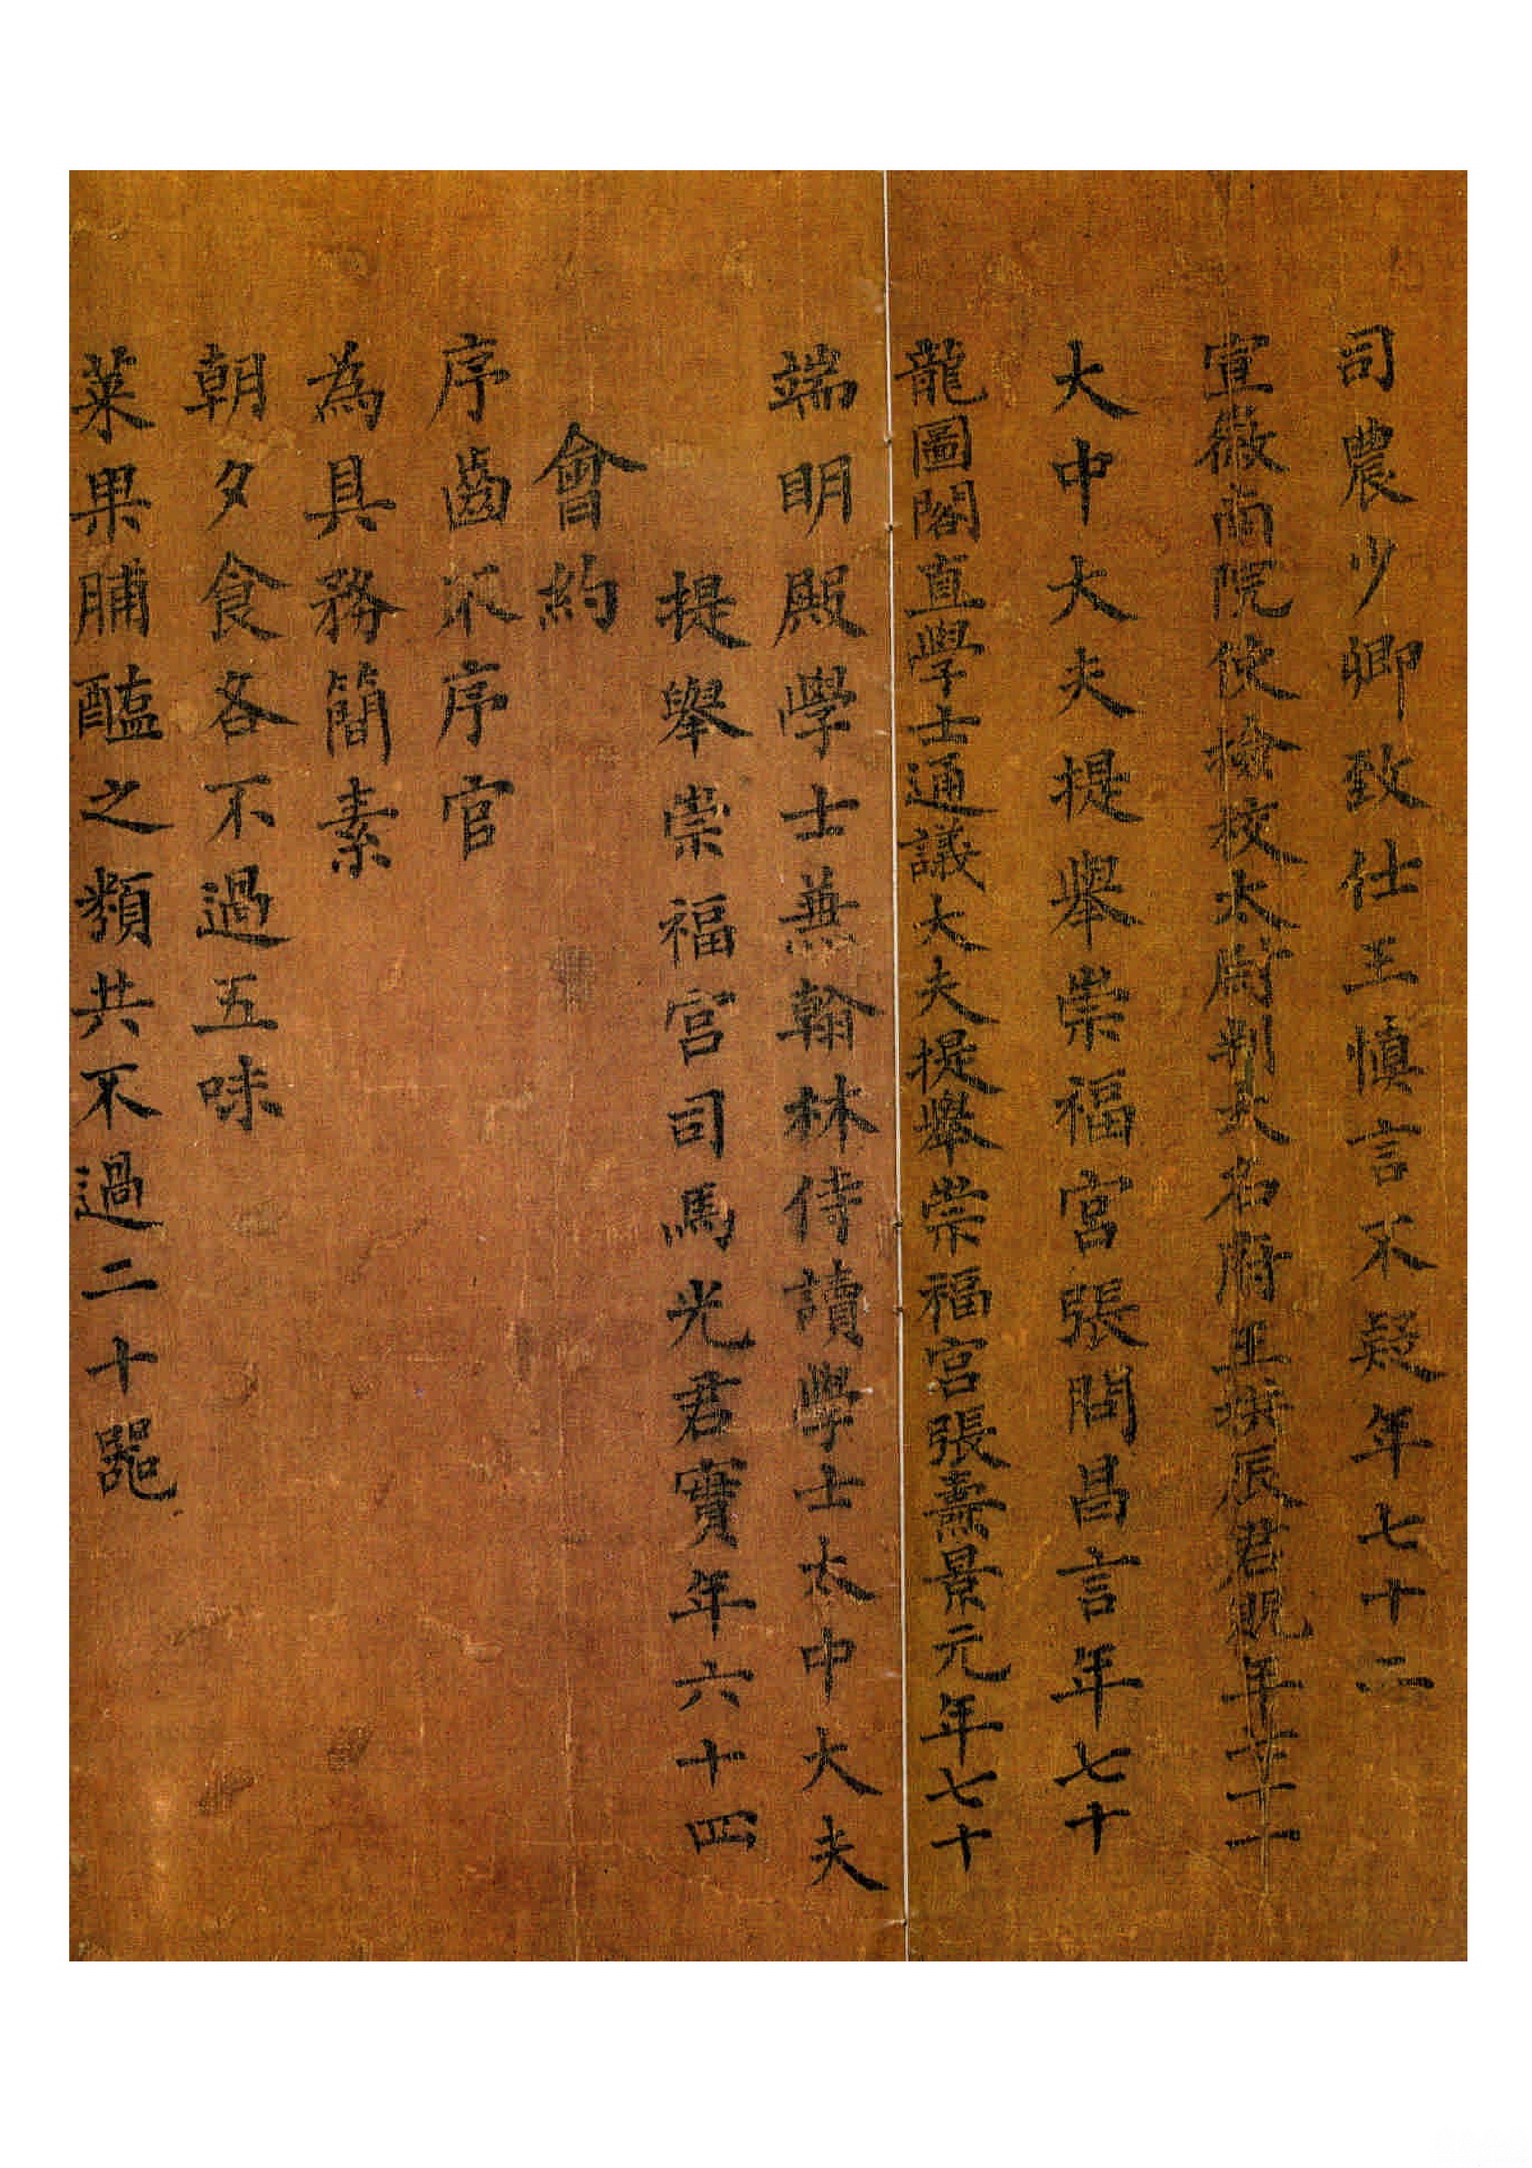 司農少卿致仕王慎言不疑年七十二
宣徽南院使撿挍太尉判大名府王拱辰君貺年七十一
大中大夫提舉崇福宮張問昌言年七十
龍圖閣直學士通議大夫提舉崇福宮張燾景元年七十
端明殿學士蕪翰林侍讀學士太中大夫
提舉崇福宮司馬光君實年六十四
會約
序齒不序官
為具務簡素
朝夕食各不過五味
菜果脯醢之類共不過二十器